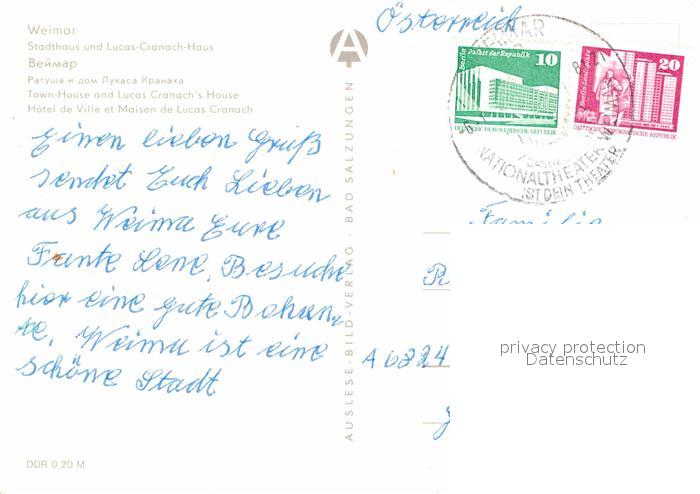 Weimar
Stadthaus und Lucas-Cranach-Haus
Веймар
Ратуша и дом Лукаса Кранаха
Town-House and Lucas Cranach's House
Hôtel de Ville et Maison de Lucas Cranach
Einen lieben Gruß
sendet Euch Lieben
aus Weimar Eure
Tante Lene, Besuche
hier eine gute Bekann-
te, Weimar ist eine
schöne Stadt
DDR 0,20 M
AUSLESE-BILD-VERLAG · BAD SALZUNGEN
Österreich
Berlin Palast der Republik 10
DEUTSCHE DEMOKRATISCHE REPUBLIK
Berlin Leninplatz 20
DEUTSCHE DEMOKRATISCHE REPUBLIK
WEIMAR
NATIONALTHEATER WEIMAR
IST DEIN THEATER
Familie
A 6824
privacy protection
Datenschutz